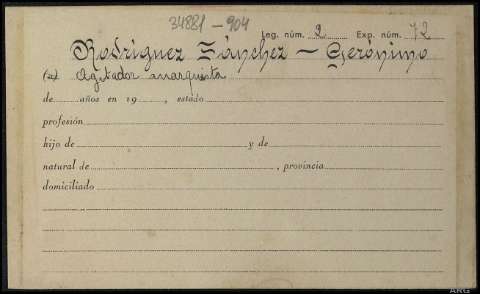 34881 - 904
Leg. núm. 2 Exp. núm. 72
Rodríguez Sánchez — Gerónimo
(a) Agitador anarquista
de años en 19 , estado
profesión
hijo de y de
natural de , provincia
domiciliado
ARG